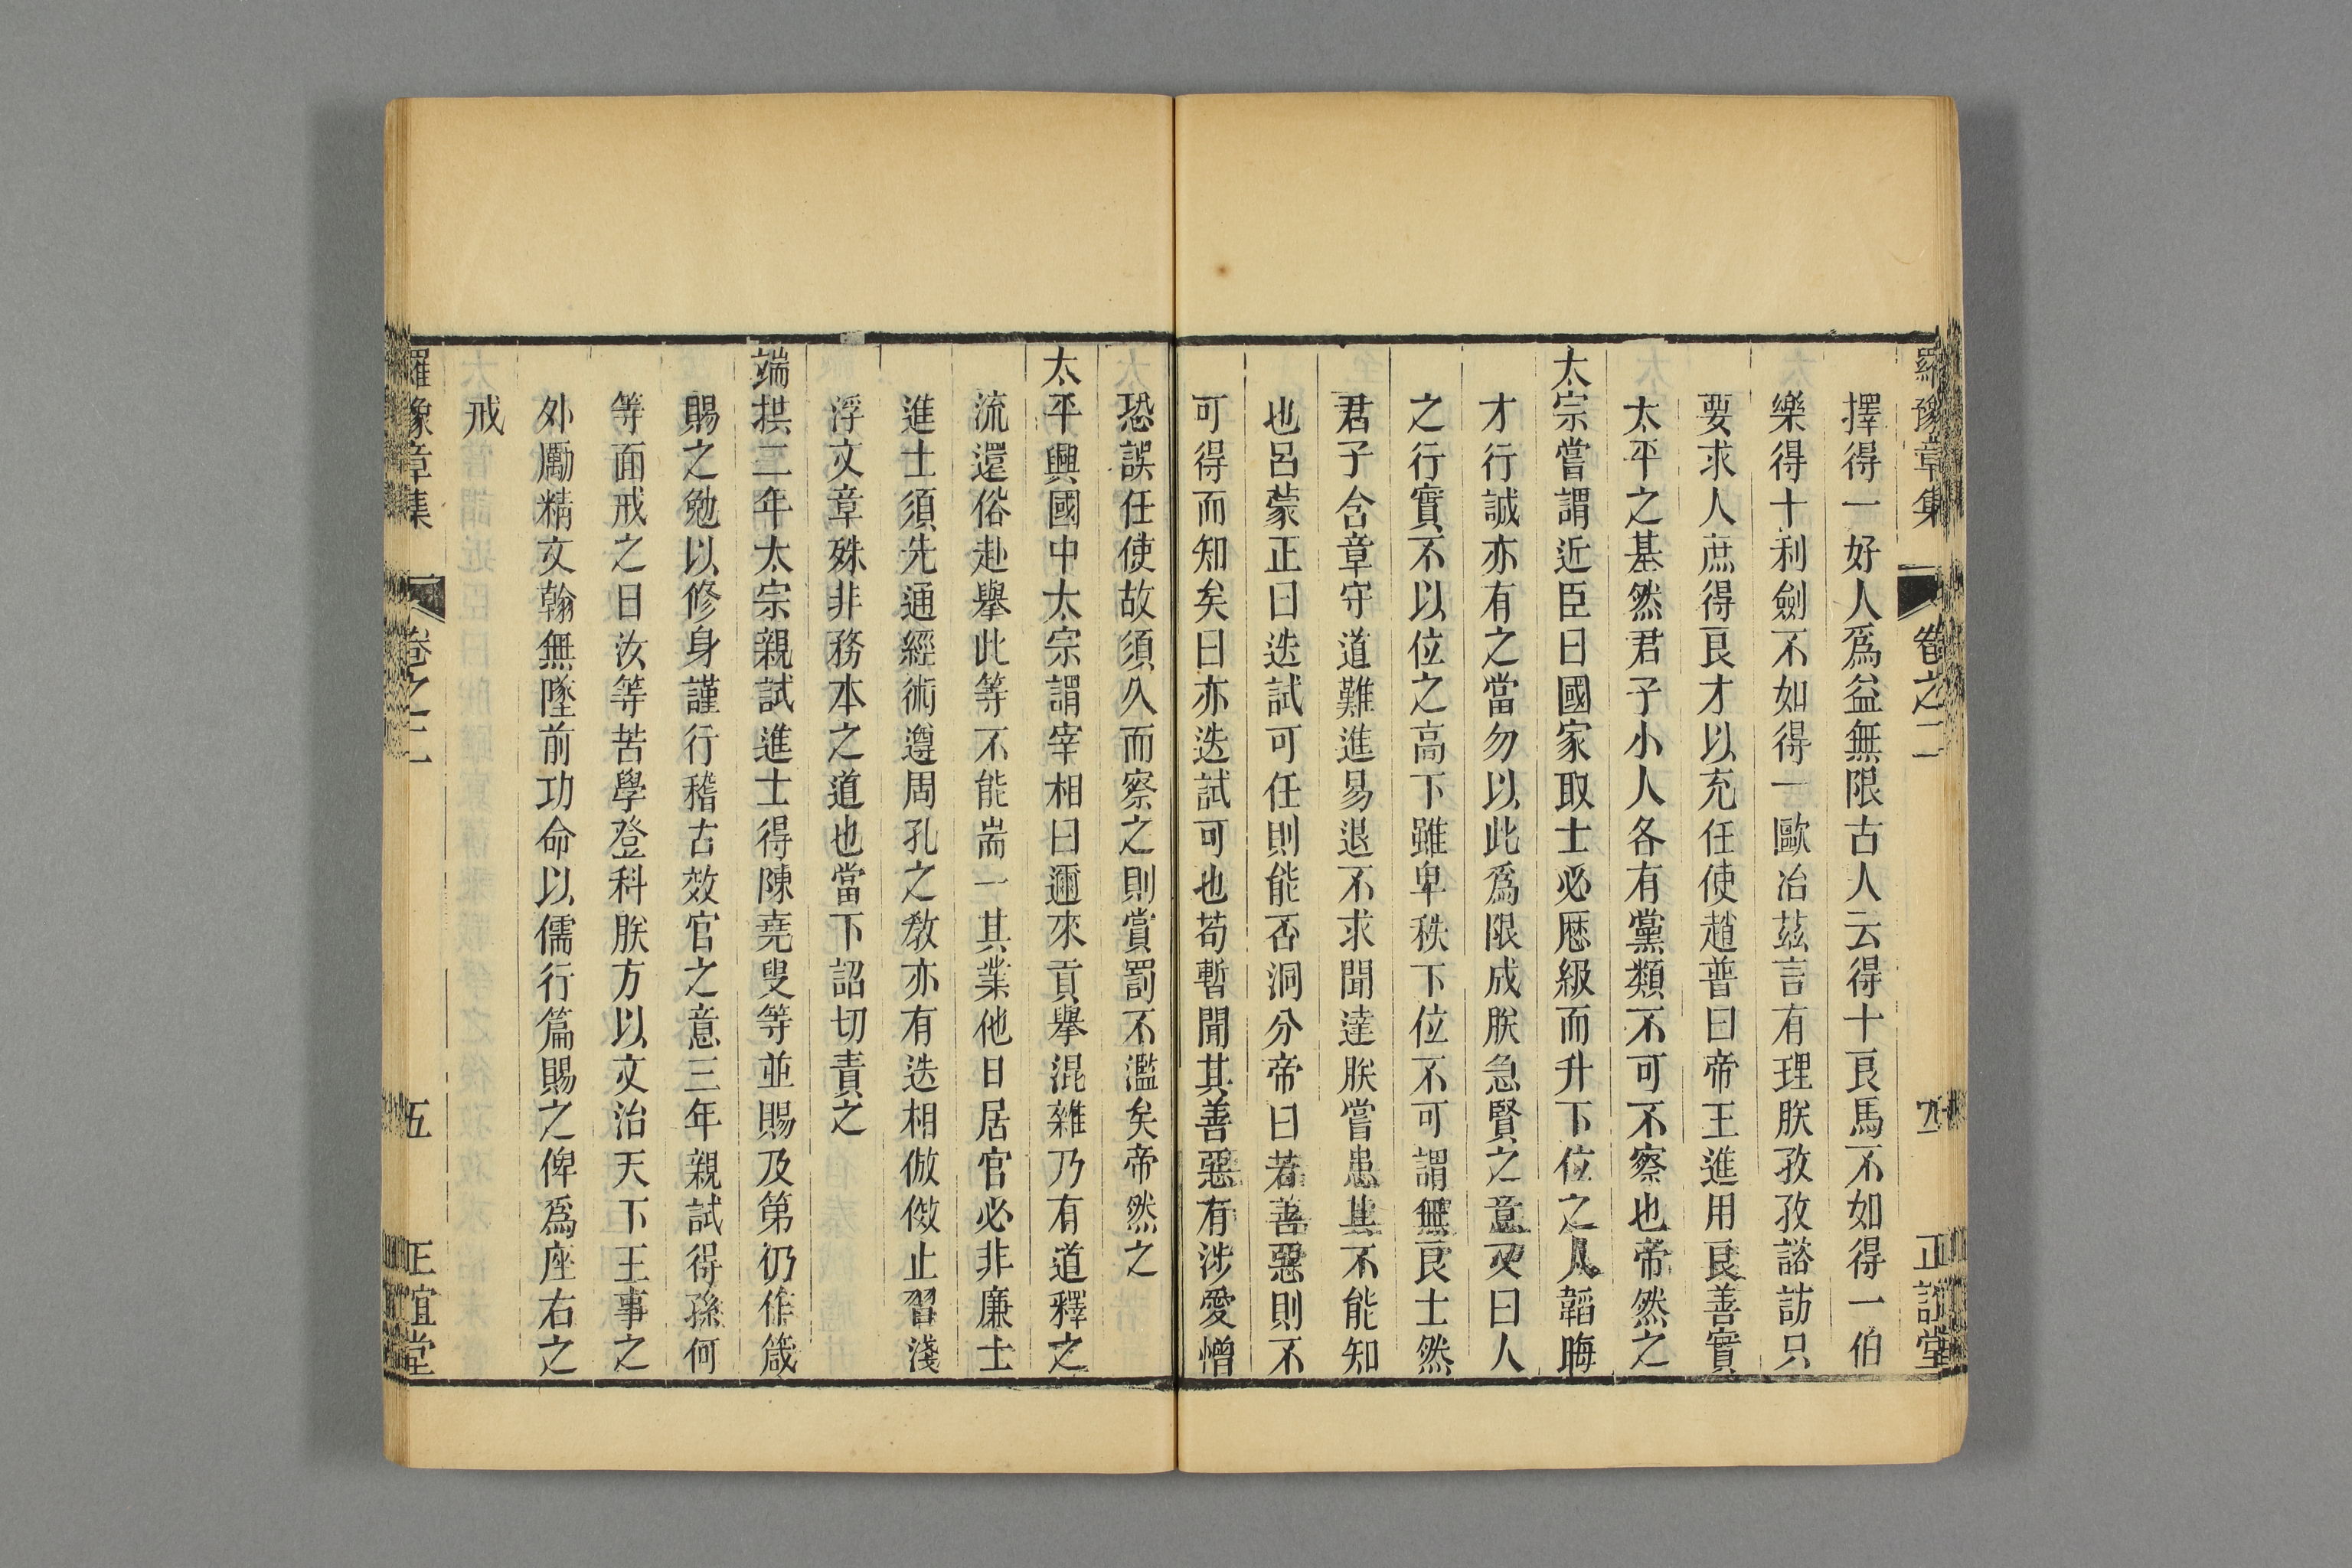 羅豫章集 卷之二 正誼堂
擇得一好人爲益無限古人云得十良馬不如得一伯
樂得十利劍不如得一歐冶茲言有理朕孜孜諮訪只
要求人庶得良才以充任使趙普曰帝王進用良善實
太平之基然君子小人各有黨類不可不察也帝然之
太宗嘗謂近臣曰國家取士必歷級而升下位之人韜晦
才行誠亦有之當勿以此爲限成朕急賢之意又曰人
之行實不以位之高下雖卑秩下位不可謂無良士然
君子含章守道難進易退不求聞達朕嘗患其不能知
也呂蒙正曰迭試可任則能否洞分帝曰若善惡則不
可得而知矣曰亦迭試可也苟暫聞其善惡有涉愛憎
恐誤任使故須久而察之則賞罰不濫矣帝然之
太平興國中太宗謂宰相曰邇來貢舉混雜乃有道釋之
流還俗赴舉此等不能耑一其業他日居官必非廉士
進士須先通經術遵周孔之教亦有迭相倣傚止習淺
浮文章殊非務本之道也當下詔切責之
端拱二年太宗親試進士得陳堯叟等並賜及第仍作箴
賜之勉以修身謹行稽古效官之意三年親試得孫何
等面戒之曰汝等苦學登科朕方以文治天下王事之
外勵精文翰無墜前功命以儒行篇賜之俾爲座右之
戒
羅豫章集 卷之二 五 正誼堂